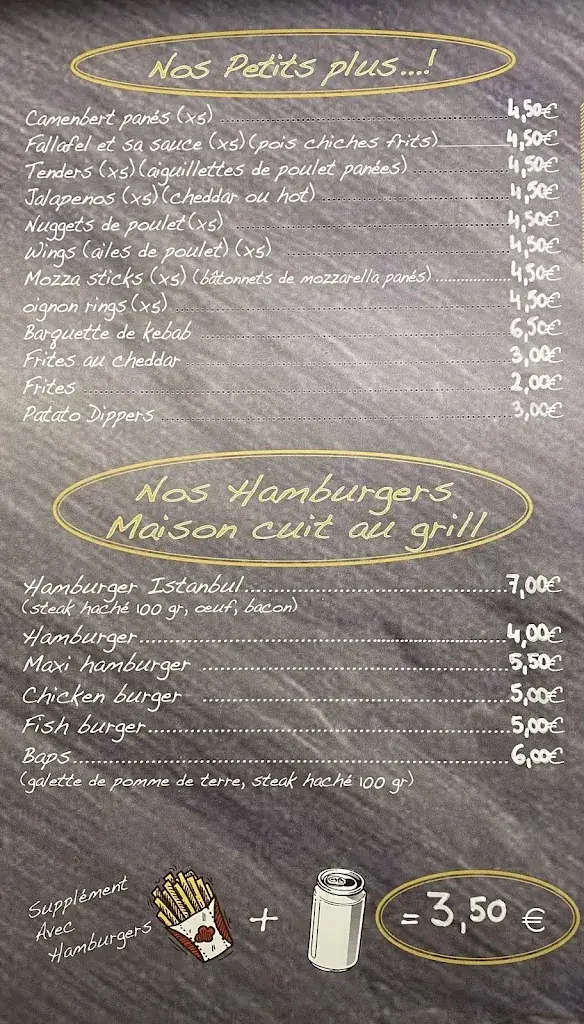 Nos Petits plus....!
Camenbert panés (x5) 4,50€
Fallafel et sa sauce (x5) (pois chiches frits) 4,50€
Tenders (x5) (aiguillettes de poulet panées) 4,50€
Jalapenos (x5) (cheddar ou hot) 4,50€
Nuggets de poulet (x5) 4,50€
Wings (ailes de poulet) (x5) 4,50€
Mozza sticks (x5) (bâtonnets de mozzarella panés) 4,50€
oignon rings (x5) 4,50€
Barquette de kebab 6,50€
Frites au cheddar 3,00€
Frites 2,00€
Patato Dippers 3,00€
Nos Hamburgers
Maison cuit au grill
Hamburger Istanbul 7,00€
(steak haché 100 gr, oeuf, bacon)
Hamburger 4,00€
Maxi hamburger 5,50€
Chicken burger 5,00€
Fish burger 5,00€
Baps 6,00€
(galette de pomme de terre, steak haché 100 gr)
Supplément
Avec
Hamburgers
+ = 3,50 €